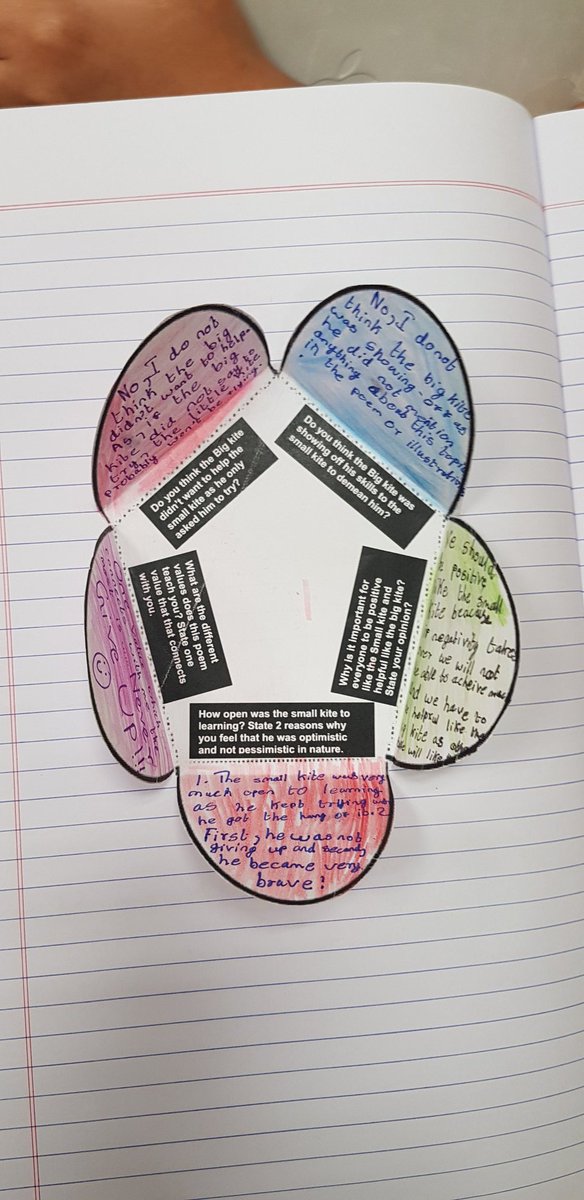 No, I do not
think the big
didnot want to help.
As if the big
kite did not say to
try, the little kite
probably
Do you think the Big kite
didn't want to help the
small kite as he only
asked him to try?
No, I do not
think the big kite
was showing off as
he did not mention
anything about this topic
in the poem or illustration
Do you think the Big kite was
showing off his skills to the
small kite to demean him?
Why is it important for
everyone to be positive
like the Small kite and
helpful like the big kite?
State your opinion?
should
positive
the small
because
negativity
we will not
able to acheive
we have to
helpful like
kite as
will like
How open was the small kite to
learning? State 2 reasons why
you feel that he was optimistic
and not pessimistic in nature.
1. The small kite was very
much open to learning
as he kept trying
he got the hang of it. 2
First, he was not
giving up and secondly
he became very
brave!
What are the different
values does this poem
teach you? State one
value that that connects
with you.
UP!!